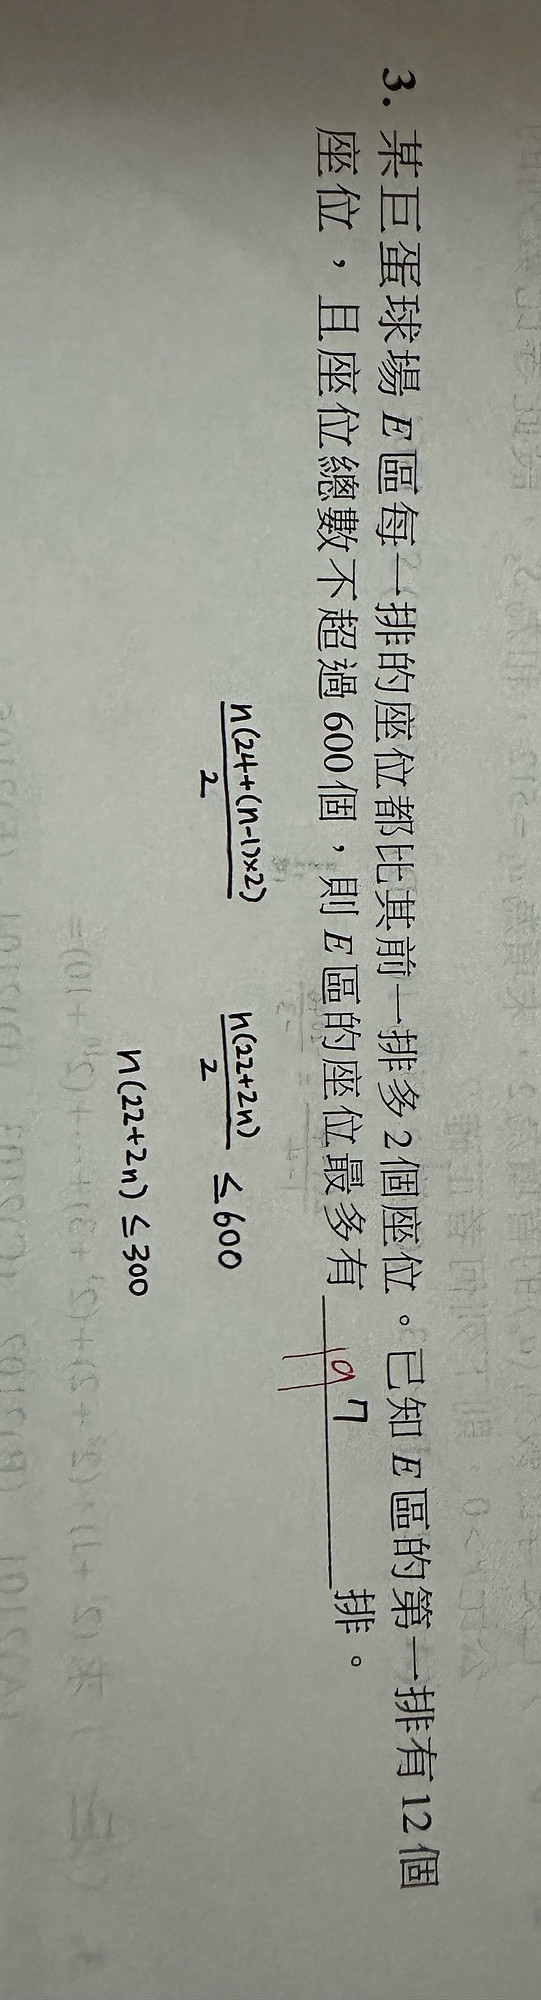 3. 某巨蛋球場E區每一排的座位都比其前一排多2個座位。已知E區的第一排有12個
座位，且座位總數不超過600個，則E區的座位最多有 19 7 排。
n(24+(n-1)×2)/2
n(22+2n)/2 ≤ 600
n(22+2n) ≤ 300